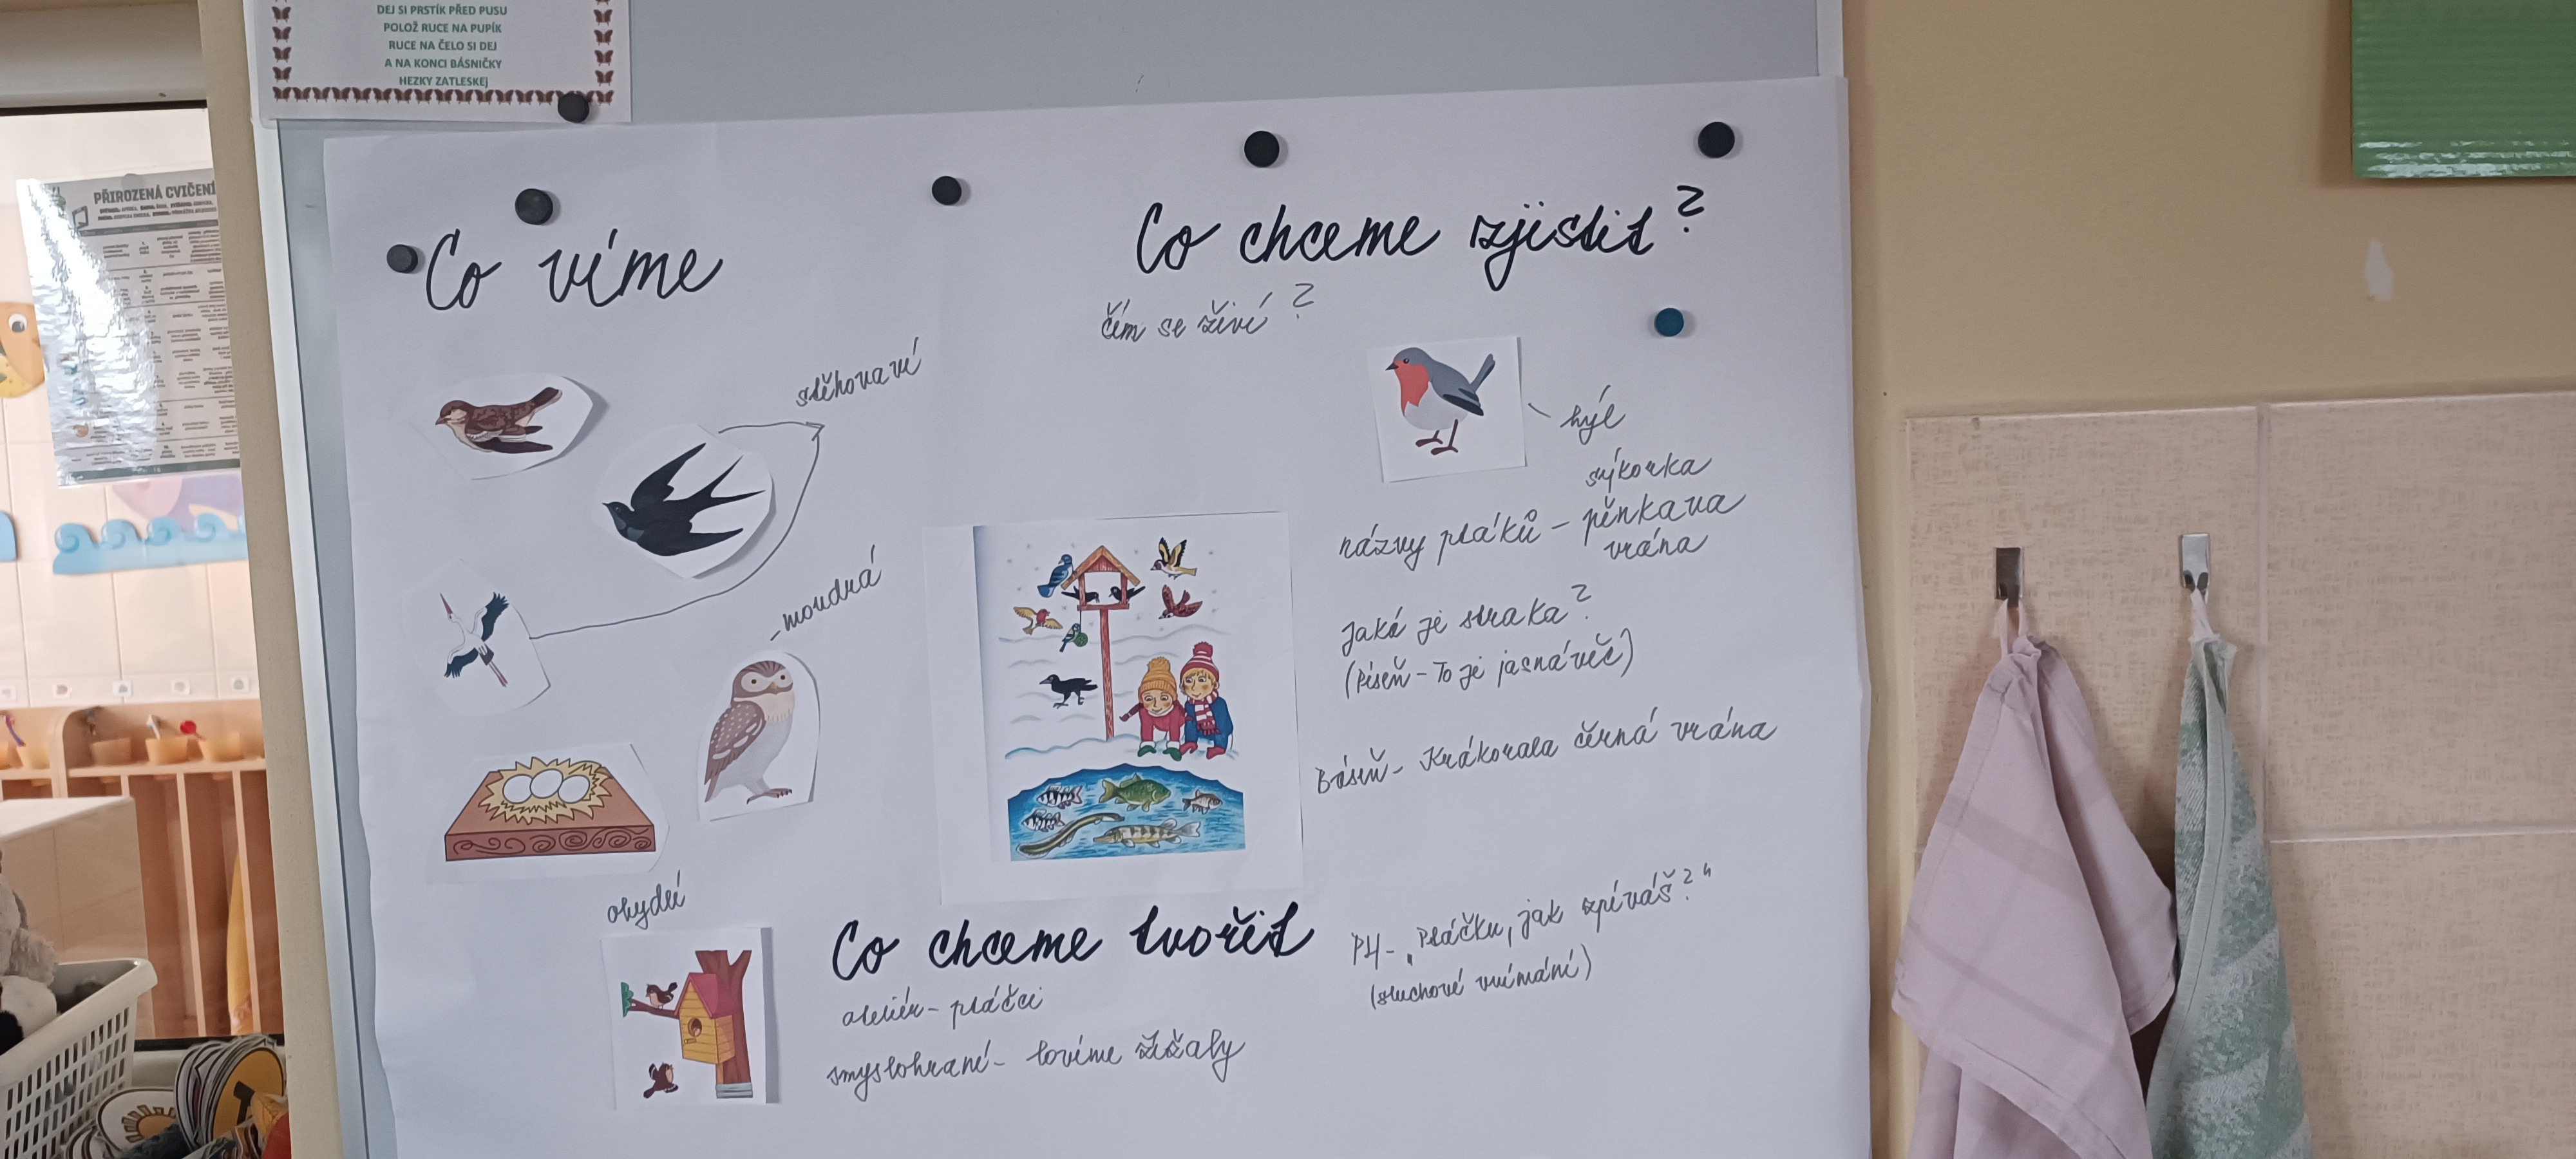 DEJ SI PRSTÍK PŘED PUSU
POLOŽ RUCE NA PUPÍK
RUCE NA ČELO SI DEJ
A NA KONCI BÁSNIČKY
HEZKY ZATLESKEJ
PŘIROZENÁ CVIČENÍ
Co víme
stěhovaví
moudrá
obydlí
Co chceme zjistit?
čím se živí?
hýl
sýkorka
názvy ptáků - pěnkava
vrána
Jaká je straka?
(píseň - To je jasná věc)
Báseň - Krákorala černá vrána
PH - „Ptáčku, jak zpíváš?"
(sluchové vnímání)
Co chceme tvořit
ateliér - ptáčci
smyslohraní - lovíme žížaly